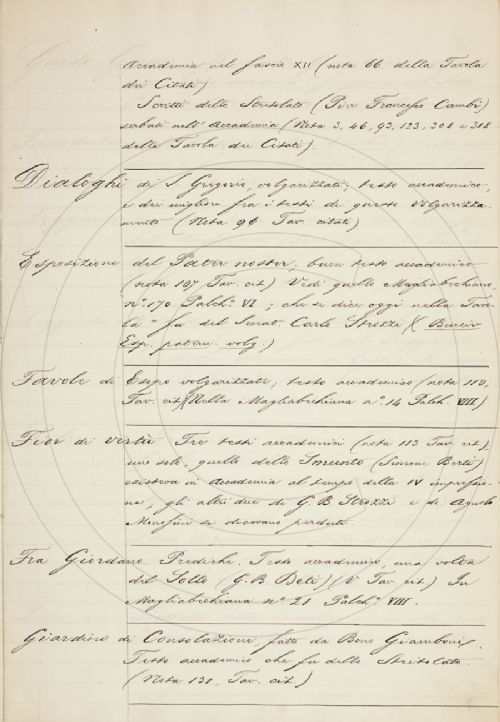 Accademia nel fascio XII (nota 66 della Tavola
dei Citati)
Scritti dello Stritolato (Pier Francesco Cambi)
serbati nell' Accademia (Nota 3, 46, 93, 123, 308 e 318
della Tavola dei Citati).
Dialoghi di S. Grigorio, volgarizzati; testo accademico,
e dei migliori fra i testi di questo Volgarizza-
mento (Nota 96 Tav. citati)
Esposizione del Pater noster, buon testo accademico
(nota 107 Tav. cit) Vedi quello Magliabechiano,
n.º 170 Palch.º VI; che si dice oggi nella Tavo-
la " fu del Senat. Carlo Strozzi" (
Esp. patern. volg.)
Favole di Esopo volgarizzate; testo accademico (nota 110,
Tav. cit) (Nella Magliabechiana n.º 14 Palch. VIII)
Fior di virtù Tre testi accademici (nota 113 Tav. cit)
uno solo, quello dello Smunto (Simone Berti)
esisteva in Accademia al tempo della IV impressio-
ne; gli altri due di G. B. Strozzi e di Agnolo
si dicevano perduti
Fra Giordano Prediche. Testo accademico, una volta
del Sollo (G. B. Deti) (V. Tav cit) In
Magliabechiana n.º 21 Palch.º VIII.
Giardino di Consolazione fatto da Bono Giamboni.
Testo accademico che fu dello Stritolato
(Nota 131, Tav. cit)